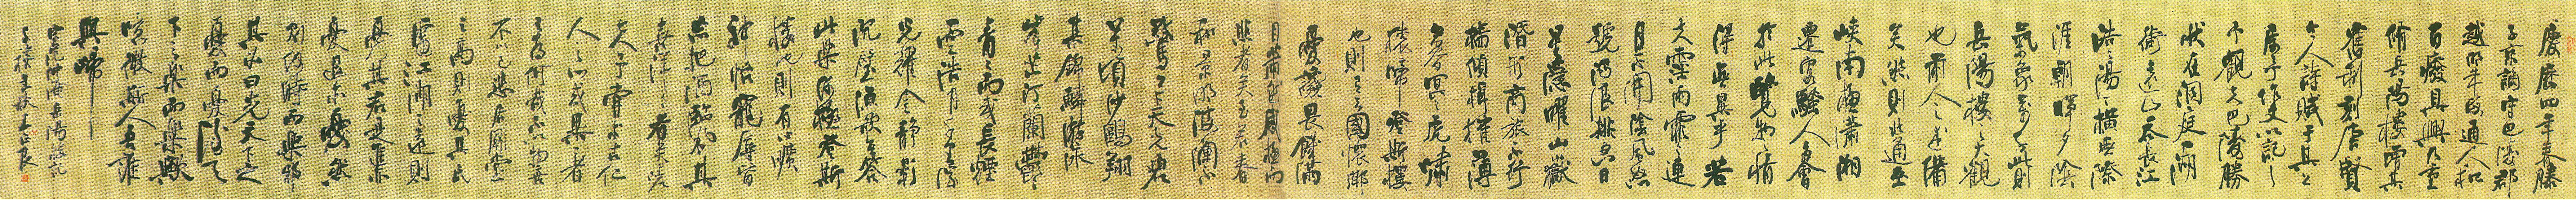 慶曆四年春滕
子京謫守巴陵郡
越明年政通人和
百廢具興乃重
脩岳陽樓增其
舊制刻唐賢
今人詩賦于其上
屬予作文以記之
予觀夫巴陵勝
狀在洞庭一湖
銜遠山吞長江
浩浩湯湯橫無際
涯朝暉夕陰
氣象萬千此則
岳陽樓之大觀
也前人之述備
矣然則北通巫
峽南極瀟湘
遷客騷人多會
於此覽物之情
得無異乎若
夫霪雨霏霏連
月不開陰風怒
號濁浪排空日
星隱曜山嶽
潛形商旅不行
檣傾楫摧薄
暮冥冥虎嘯
猿啼登斯樓
也則有去國懷鄉
憂讒畏譏滿
目蕭然感極而
悲者矣至若春
和景明波瀾不
驚上下天光一碧
萬頃沙鷗翔
集錦鱗游泳
岸芷汀蘭鬱鬱
青青而或長煙
一空皓月千里浮
光耀金靜影
沉璧漁歌互答
此樂何極登斯
樓也則有心曠
神怡寵辱皆
忘把酒臨風其
喜洋洋者矣嗟
夫予嘗求古仁
人之心或異二者
之為何哉不以物喜
不以己悲居廟堂
之高則憂其民
處江湖之遠則
憂其君是進亦
憂退亦憂然
則何時而樂耶
其必曰先天下之
憂而憂後天
下之樂而樂歟
噫微斯人吾誰
與歸
范仲淹岳陽樓記